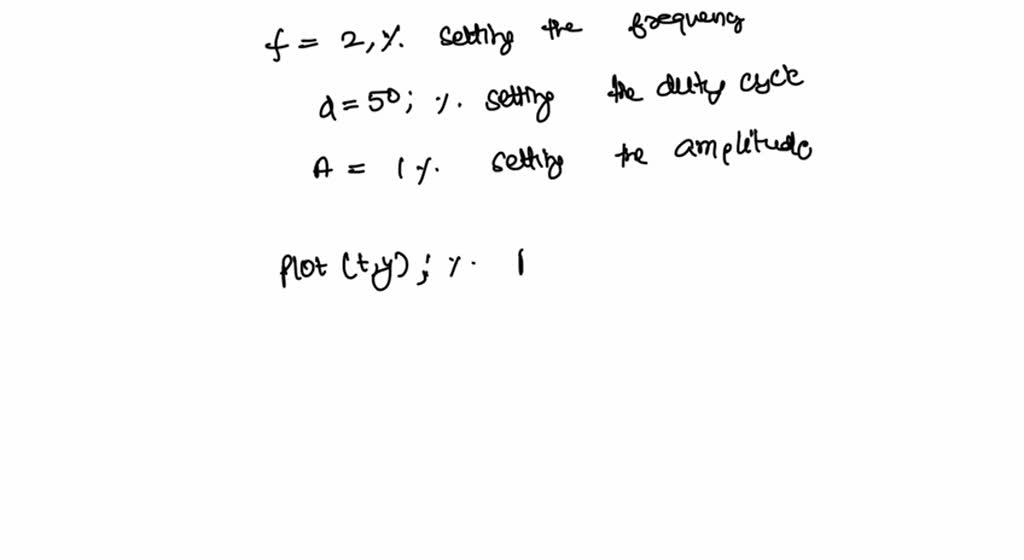 f = 2, % setting the frequency
d = 50; % setting the duty cycle
A = 1 % setting the amplitude
plot (t,y); %